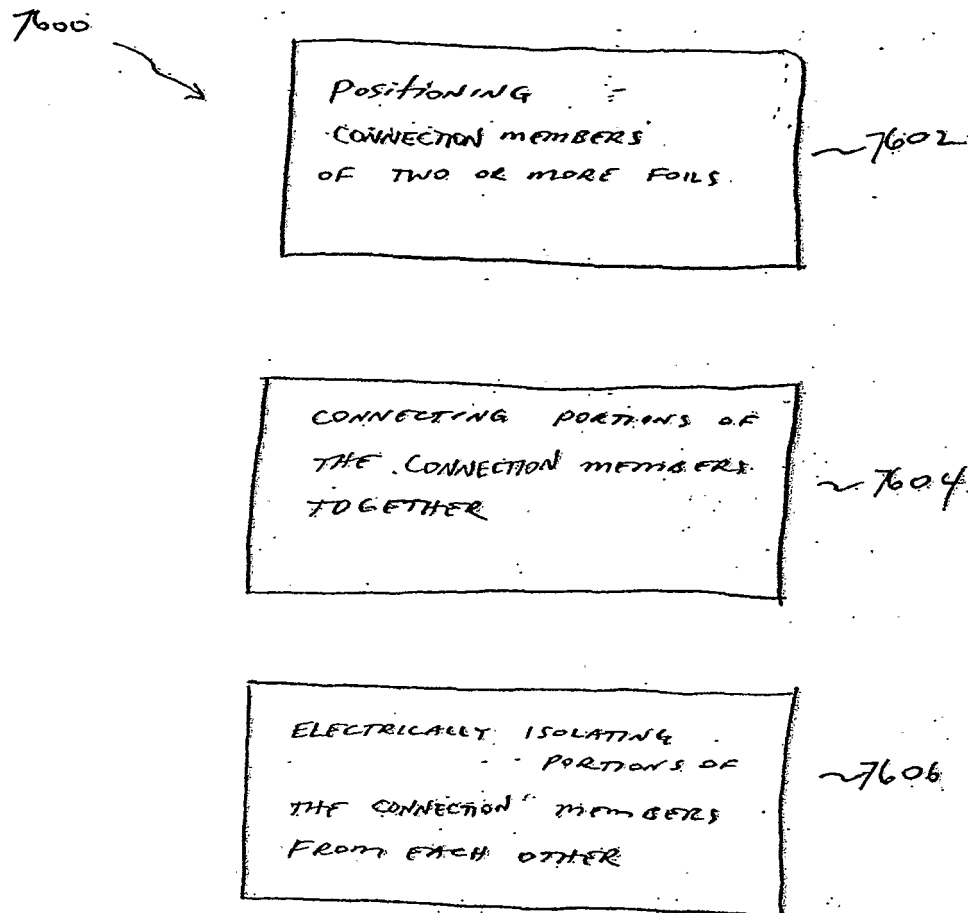 7600
PositioNING
CONNECTION mEmBERS
OF TWO OR mORE FOILS.
~7602
CONNECTING PORTIONS OF
THE CONNECTION mEmBERS
TOGETHER
~7604
ELECTRICALLY ISOLATING
PORTIONS OF
THE CONNECTION mEmBERS
FROm EACH OTHER
~7606